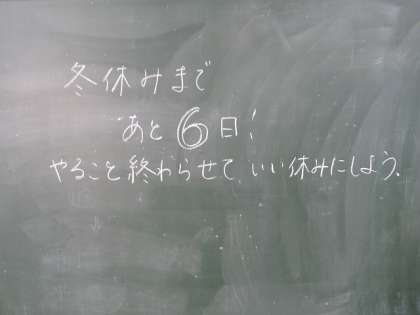 冬休みまで
あと⑥日!
やること終わらせて、いい休みにしよう。